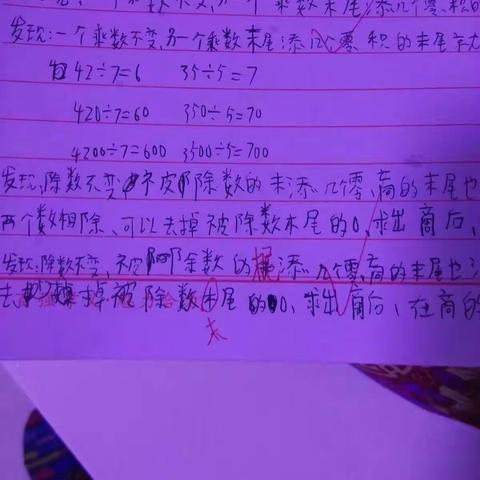 个乘数末尾添几个零,积的
发现:一个乘数不变,另一个乘数末尾添几个零 积的末尾
42÷7=6 35÷5=7
420÷7=60 350÷5=70
4200÷7=600 3500÷5=700
发现,除数不变 被除数的末添几个零,商的末尾也
两个数相除、可以去掉被除数末尾的0,求出商后、
发现:除数不变,被除数的 添几个零,商的末尾也
去掉被除数末尾的0,求出商后、在商的
末